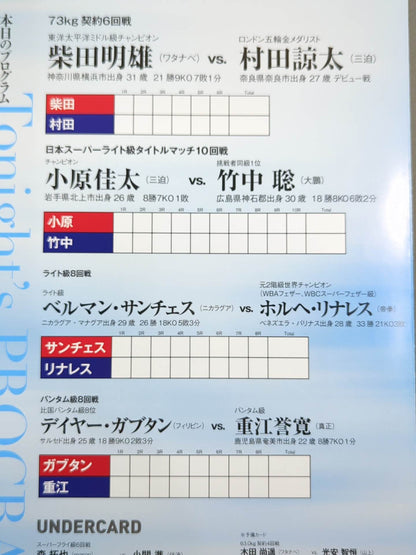 本日のプログラム
Tonight's PROGRA
73kg 契約6回戦
東洋太平洋ミドル級チャンピオン
柴田明雄（ワタナベ） vs. ロンドン五輪金メダリスト 村田諒太（三迫）
神奈川県横浜市出身 31歳 21勝9KO7敗1分
奈良県奈良市出身 27歳 デビュー戦
1R 2R 3R 4R 5R 6R Total
柴田
村田
日本スーパーライト級タイトルマッチ10回戦
チャンピオン
小原佳太（三迫） vs. 挑戦者同級1位 竹中 聡（大鵬）
岩手県北上市出身 26歳 8勝7KO1敗
広島県神石郡出身 30歳 18勝8KO6敗2分
1R 2R 3R 4R 5R 6R 7R 8R 9R 10R Total
小原
竹中
ライト級8回戦
ライト級
ベルマン・サンチェス（ニカラグア） vs. 元2階級世界チャンピオン（WBAフェザー、WBCスーパーフェザー級） ホルヘ・リナレス（帝拳）
ニカラグア・マナグア出身 29歳 26勝18KO5敗3分
ベネズエラ・バリナス出身 28歳 33勝21KO3敗
1R 2R 3R 4R 5R 6R 7R 8R Total
サンチェス
リナレス
バンタム級8回戦
比国バンタム級8位
デイヤー・ガブタン（フィリピン） vs. バンタム級 重江誉寛（真正）
サルセド出身 25歳 18勝9KO2敗3分
鹿児島県奄美市出身 22歳 8勝7KO1敗
1R 2R 3R 4R 5R 6R 7R 8R Total
ガブタン
重江
UNDERCARD
スーパーフライ級6回戦
63.0kg 契約4回戦
木田 尚遥（ワタナベ） vs. 光安 智恒